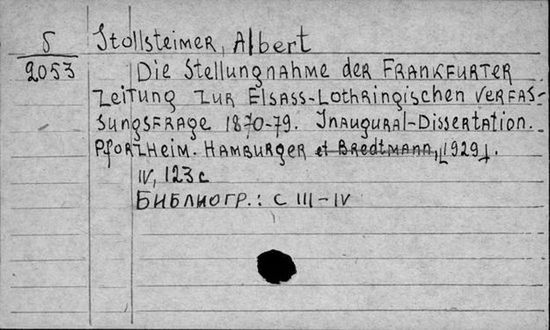 5 Stollsteimer, Albert
2053 Die Stellungnahme der Frankfurter
Zeitung zur Elsass-Lothringischen Verfas-
sungsfrage 1870-79. Inaugural-Dissertation.
Pforzheim. Hamburger et Bredtmann, [1929].
IV, 123 c
Библиогр.: с III-IV